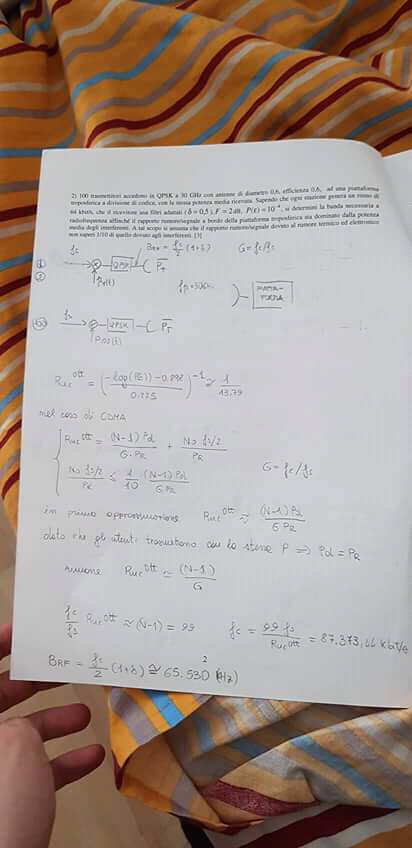 2) 100 trasmettitori accedono in QPSK a 30 GHz con antenne di diametro 0,6, efficienza 0,6, ad una piattaforma
troposferica a divisione di codice, con la stessa potenza media ricevuta. Sapendo che ogni stazione genera un flusso di
64 kbit/s, che il ricevitore usa filtri adattati (δ = 0,5), F = 2 dB, P(ε) = 10⁻⁴, si determini la banda necessaria a
radiofrequenza affinché il rapporto rumore/segnale a bordo della piattaforma troposferica sia dominato dalla potenza
media degli interferenti. A tal scopo si assuma che il rapporto rumore/segnale dovuto al rumore termico ed elettronico
non superi 1/10 di quello dovuto agli interferenti. [3]
BRF = fc/2 (1+δ) G = fc/fs
① fs QPSK PT
②
(100) fs QPSK PT
P100(t)
PIATTA-FORMA
Ruc^ott = ((-log(PE)) - 0.892 / 0.225)^-1 ≃ 1/13.79
nel caso di CDMA
Ruc^ott = (N-1) Pd / G · PR + No fs/2 / PR
No fs/2 / PR ≤ 1/10 (N-1) Pd / G PR G = fc/fs
in prima approssimazione Ruc^ott ≈ (N-1) Pd / G PR
dato che gli utenti trasmettono con la stessa P ⇒ Pd = PR
rimane Ruc^ott ≃ (N-1) / G
fc/fs Ruc^ott ≈ (N-1) = 99 fc = 99 fs / Ruc^ott = 87.373,44 kbit/s
2
BRF = fc/2 (1+δ) ≅ 65.530 kHz)